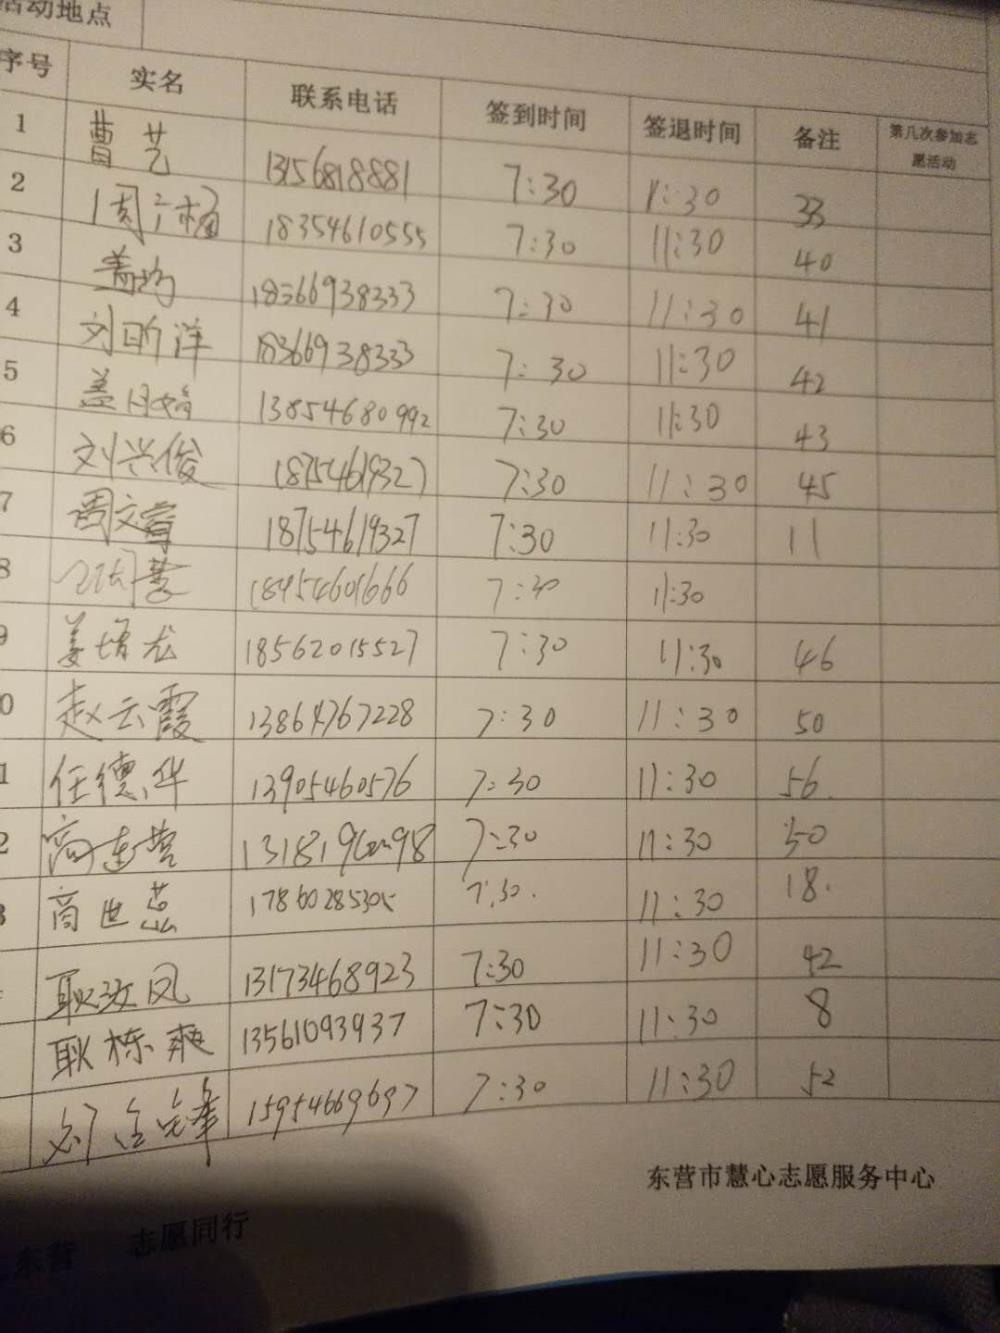 活动地点
序号 实名 联系电话 签到时间 签退时间 备注 第几次参加志愿活动
1 曹艺 13156818881 7:30 11:30 33
2 周 18354610555 7:30 11:30 40
3 盖均 18366938333 7:30 11:30 41
4 刘昕洋 18366938333 7:30 11:30 42
5 盖月娟 13854680992 7:30 11:30 43
6 刘兴俊 18754619327 7:30 11:30 45
7 周文 18754619327 7:30 11:30 11
8 18454601666 7:30 11:30
9 姜增龙 18562015527 7:30 11:30 46
0 赵云霞 13864767228 7:30 11:30 50
1 任德华 13905460576 7:30 11:30 56
2 商连营 7:30 11:30 50
3 商世蕊 17860285305 7:30. 11:30 18.
耿改凤 13173468923 7:30 11:30 42
耿栋爽 13561093937 7:30 11:30 8
15954669697 7:30 11:30 52
东营市慧心志愿服务中心
东营 志愿同行